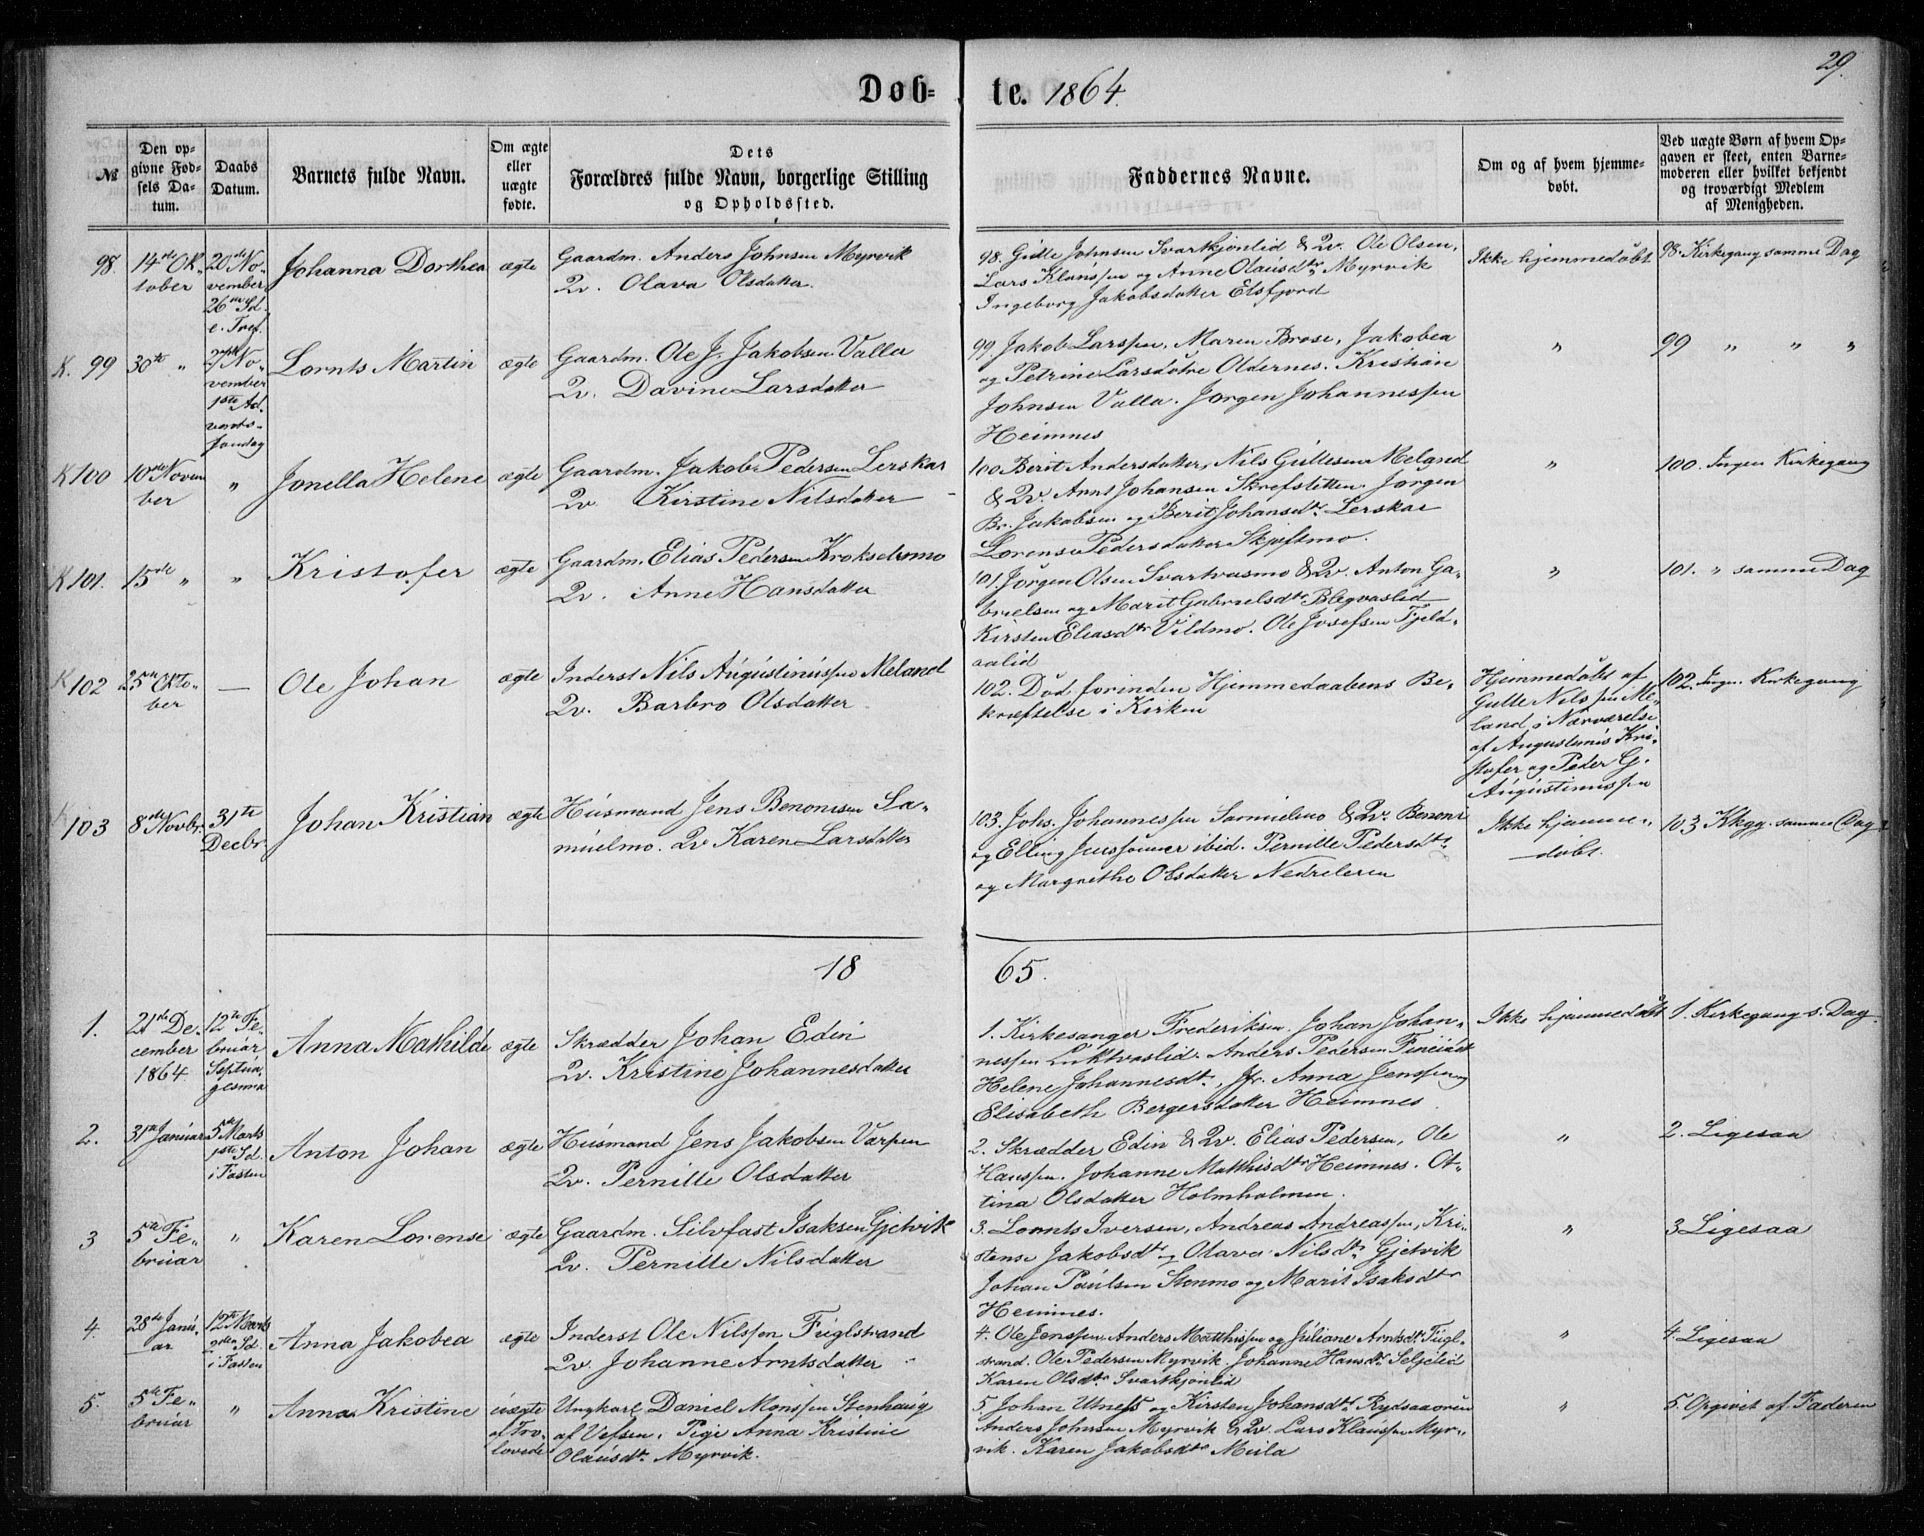 29.
Døb-te. 1864.
№
Den opgivne Fødsels Datum.
Daabs Datum.
Barnets fulde Navn.
Om ægte eller uægte fødte.
Dets Forældres fulde Navn, borgerlige Stilling og Opholdssted.
Faddernes Navne.
Om og af hvem hjemmedøbt.
Ved uægte Børn af hvem Opgaven er skeet, enten Barnemoderen eller hvilket bekjendt og troværdigt Medlem af Menigheden.
98.
14de Oktober
20de November
26m Sd.
e. Tref.
Johanna Dorthea
ægte
Gaardm. Anders Johnsen Myrvik
Qv. Olava Olsdatter.
98. Gitte Johnsen Svartkjønlid & Qv. Ole Olsen,
Lars Klaussen og Anne Olausdtr Myrvik
Ingeborg Jakobsdatter Elsfjord
Ikke hjemmedøbt
98. Kirkegang samme Dag
K. 99
30te "
27de November
1ste Advents-
søndag
Lornts Martin
ægte
Gaardm. Ole J. Jakobsen Valla
Qv. Davine Larsdatter
99. Jakob Larssen, Maren Brose, Jakobea
og Petrine Larsdøtre Oldernes. Kristian
Johnsen Valla. Jørgen Johannessen
Heimnes
"
99 " " "
K 100
10de November
"
Jonella Helene
ægte
Gaardm. Jakob Pedersen Lerskar
Qv. Kirstine Nilsdatter
100 Berit Andersdatter, Nils Gullesen Melgnd
& Qv. Arnt Johansen Skrefstetten. Jørgen
Br. Jakobsen og Berit Johansdtr Lerskar
Lorense Pedersdatter Skjeftmo.
"
100. Ingen Kirkegang
K 101.
15de "
"
Kristofer
ægte
Gaardm. Elias Pedersen Krokselvmo
Qv. Anne Hansdatter
101 Jørgen Olsen Svartvasmo & Qv. Anton Ga-
brielsen og Marit Gabrielsdtr Blegvaslid
Kirsten Eliasdtr Vildmo. Ole Josefsen Fjeld-
aalid
"
101. " samme Dag
K 102
25de Oktober
—
Ole Johan
ægte
Inderst Nils Augustinussen Meland
Qv. Barbro Olsdatter
102. Død forinden Hjemmedaabens Be-
kræftelse i Kirken
Hjemmedøbt af
Gulle Nilssen Me-
land i Nærværelse
af Augustinus Kri-
stofer og Peder G.
Augustinussen
102. Ingen Kirkegang
K 103
8de Novbr.
31te Decbr.
Johan Kristian
ægte
Husmand Jens Benonisen Sa-
muelmo. Qv Karen Larsdatter
103. Johs. Johannessen Samuelmo & Qv. Benoni
og Elling Jenssønner ibid. Pernille Pedersdtr
og Margrethe Olsdatter Nedreleren
Ikke hjemme-
døbt.
103 Kkgg. samme Dag
1865.
1.
21de December
1864
12te Februar
Septua-
gesima
Anna Mathilde
ægte
Skrædder Johan Edin
Qv. Kristine Johannesdatter
1. Kirkesanger Frederiksen. Johan Johan-
nessen Luktvaslid. Anders Pedersen
Helene Johannesdtr, Jfr. Anna Jenssen og
Elisabeth Bergersdatter Heimnes
Ikke hjemmedøbt
1. Kirkegang s. Dag
2.
31te Januar
5te Marts
1ste Sd.
i Fasten
Anton Johan
ægte
Husmand Jens Jakobsen Varpen
Qv. Pernille Olsdatter
2. Skrædder Edin & Qv. Elias Pedersen, Ole
Hanssen. Johanne Matthisdtr Heimnes. Ot-
tina Olsdatter Holmholmen.
"
2. Ligesaa
3
5te Februar
"
Karen Lorense
ægte
Gaardm. Silvfast Isaksen Gjetvik
Qv. Pernille Nilsdatter
3. Lornts Iversen, Andreas Andreassen, Kri-
stense Jakobsdtr og Olava Nilsdtr Gjetvik
Johan Paulsen Stenmo og Marit Isaksdtr
Heimnes.
"
3 Ligesaa
4.
28de Januar
12te Marts
2den Sd.
i Fasten
Anna Jakobea
ægte
Inderst Ole Nilssen Fuglstrand
Qv. Johanne Arntsdatter
4. Ole Jenssen, Anders Matthissen og Juliane Arntsdtr Fugl-
strand. Ole Pedersen Myrvik. Johanne Hansdtr Seljelid
Karen Olsdtr Svartkjønlid
"
4. Ligesaa
5.
5te Februar
"
Anna Kristine
uægte
af Tro-
lovede
Ungkarl Daniel Monssen Stenhaug
af Vefsen. Pige Anna Kristine
Olausdtr Myrvik.
5 Johan Utnes og Kirsten Johansdtr Rydsaaøren
Anders Johnsen Myrvik & Qv. Lars Klaussen Myr-
vik. Karen Jakobsdtr Mula
"
5. Opgivet af Faderen